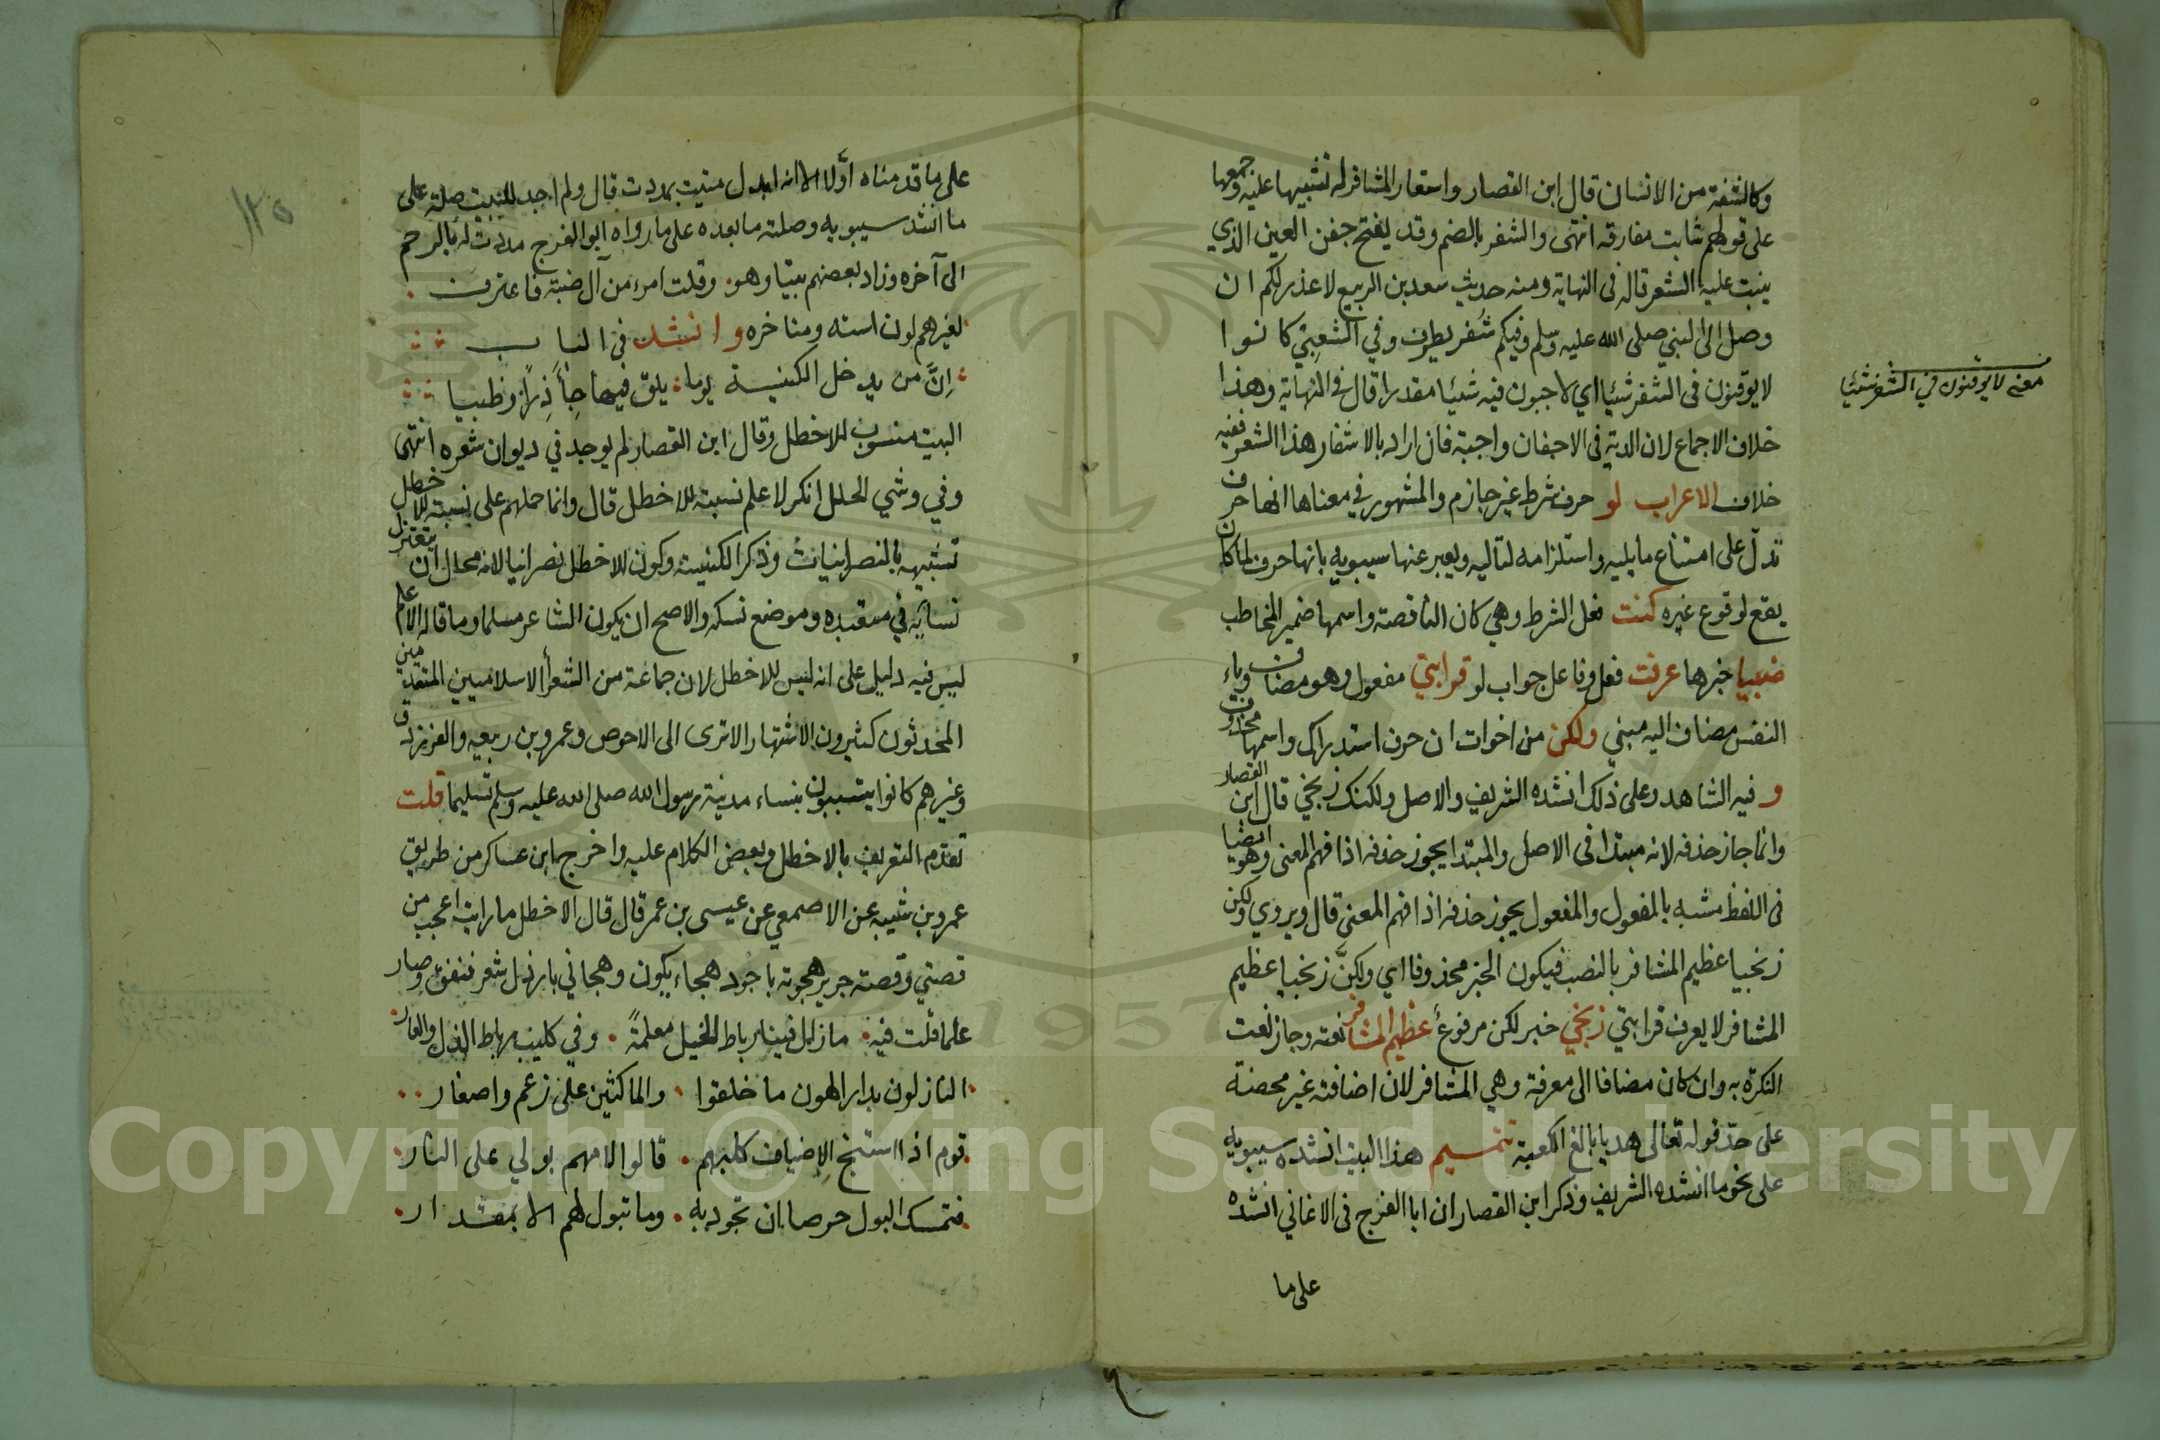 وكالشفة من الانسان قال ابن القصار واستعار المشافر له تشبيها عليه وجمعها
على قولهم شابت مفارقه انتهى والشفر بالضم وقد يفتح جفن العين الذي
ينبت عليه الشعر قاله فى النهاية ومنه حديث سعد بن الربيع لا عذر لكم ان
وصل الى النبي صلى الله عليه وسلم وفيكم شفر يطرف وفي الشعبي كانوا
لا يوقتون فى الشفر شيئا اي لا يجبون فيه شيئا مقدرا قال فى النهاية وهذا
خلاف الاجماع لان الدية فى الاجفان واجبة فان اراد بالاشفار هذا الشعر ففيه
خلاف الاعراب لو حرف شرط غير جازم والمشهور في معناها انها حرف
تدل على امتناع ما يليه واستلزامه لتاليه ويعبر عنها سيبويه بانها حرف لما كان
يقع لوقوع غيره كنت فعل الشرط وهي كان الناقصة واسمها ضمير المخاطب
ضبيا خبرها عرفت فعل وفاعل جواب لو قرابتي مفعول وهو مضاف وياء
النفس مضاف اليه مبني ولكن من اخوات ان حرف استدراك واسمها محذوف
و فيه الشاهد وعلى ذلك انشده الشريف والاصل ولكنك زنجي قال ابن القصار
وانما جاز حذفه لانه مبتدا فى الاصل والمبتدا يجوز حذفه اذا فهم المعنى وهو ايضا
فى اللفظ مشبه بالمفعول والمفعول يجوز حذفه اذا فهم المعنى قال ويروي ولكن
زنجيا عظيم المشافر بالنصب فيكون الخبر محذوفا اي ولكنّ زنجيا عظيم
المشافر لا يعرف قرابتي زنجي خبر لكن مرفوع عظيم المشافر نعته وجاز نعت
النكرة به وان كان مضافا الى معرفة وهي المشافر لان اضافته غير محضة
على حدّ قوله تعالى هديا بالغ الكعبة تتميم هذا البيت انشده سيبويه
على نحو ما انشده الشريف وذكر ابن القصار ان ابا الفرج فى الاغاني انشده
على ما
معنى لا يوقتون في الشفر شيئا
١٢٥
على ما قدمناه أوّلا الا انه ابدل منيت بمددت قال ولم اجد للبيت صلة على
ما انشد سيبويه وصلته ما بعده على ما رواه ابو الفرج مددت له بالرحم
الى آخره وزاد بعضهم بيتا وهو وقلت امرء من آل ضبة فاعترف
لغيرهم لون استه ومناخره وانشد فى الباب
إنّ من يدخل الكنيسة يوما يلق فيها جأذرا وظبيا
البيت منسوب للاخطل وقال ابن القصار لم يوجد في ديوان شعره انتهى
وفي وشي الحلل انكر الاعلم نسبته للاخطل قال وانما حملهم على نسبته للاخطل
تشبيهه بالنصرانيات وذكر الكنيسة وكون الاخطل نصرانيا لانه محال ان يتغزل
نسائه في متعبده وموضع نسكه والاصح ان يكون الشاعر مسلما وما قاله الاعلم
ليس فيه دليل على انه ليس للاخطل لان جماعة من الشعرأ الاسلاميين المتقدمين
المحدثون كثيرون الاشتهار الا ترى الى الاحوص وعمرو بن ربيعه والفرزدق
وغيرهم كانوا يتشببون بنساء مدينة رسول الله صلى الله عليه وسلم تسليما قلت
تقدم التعريف بالاخطل وبعض الكلام عليه واخرج ابن عساكر من طريق
عمرو بن شيبه عن الاصمعي عن عيسى بن عمر قال قال الاخطل ما رايت اعجب من
قصتي وقصة جرير هجوته باجود هجاء يكون وهجاني بارذل شعر فنفق وصار
علما قلت فيه ما زال فينا رباط الخيل معلمة وفي كليب رباط الذل والعار
النازلون بدار الهون ما خلقوا والماكثين على زعم واصغار
قوم اذا استنبح الاضياف كلبهم قالوا لامهم بولي على النار
فتمسك البول حرصا ان تجود به وما تبول لهم الا بمقدار
Copyright © King Saud University
1957